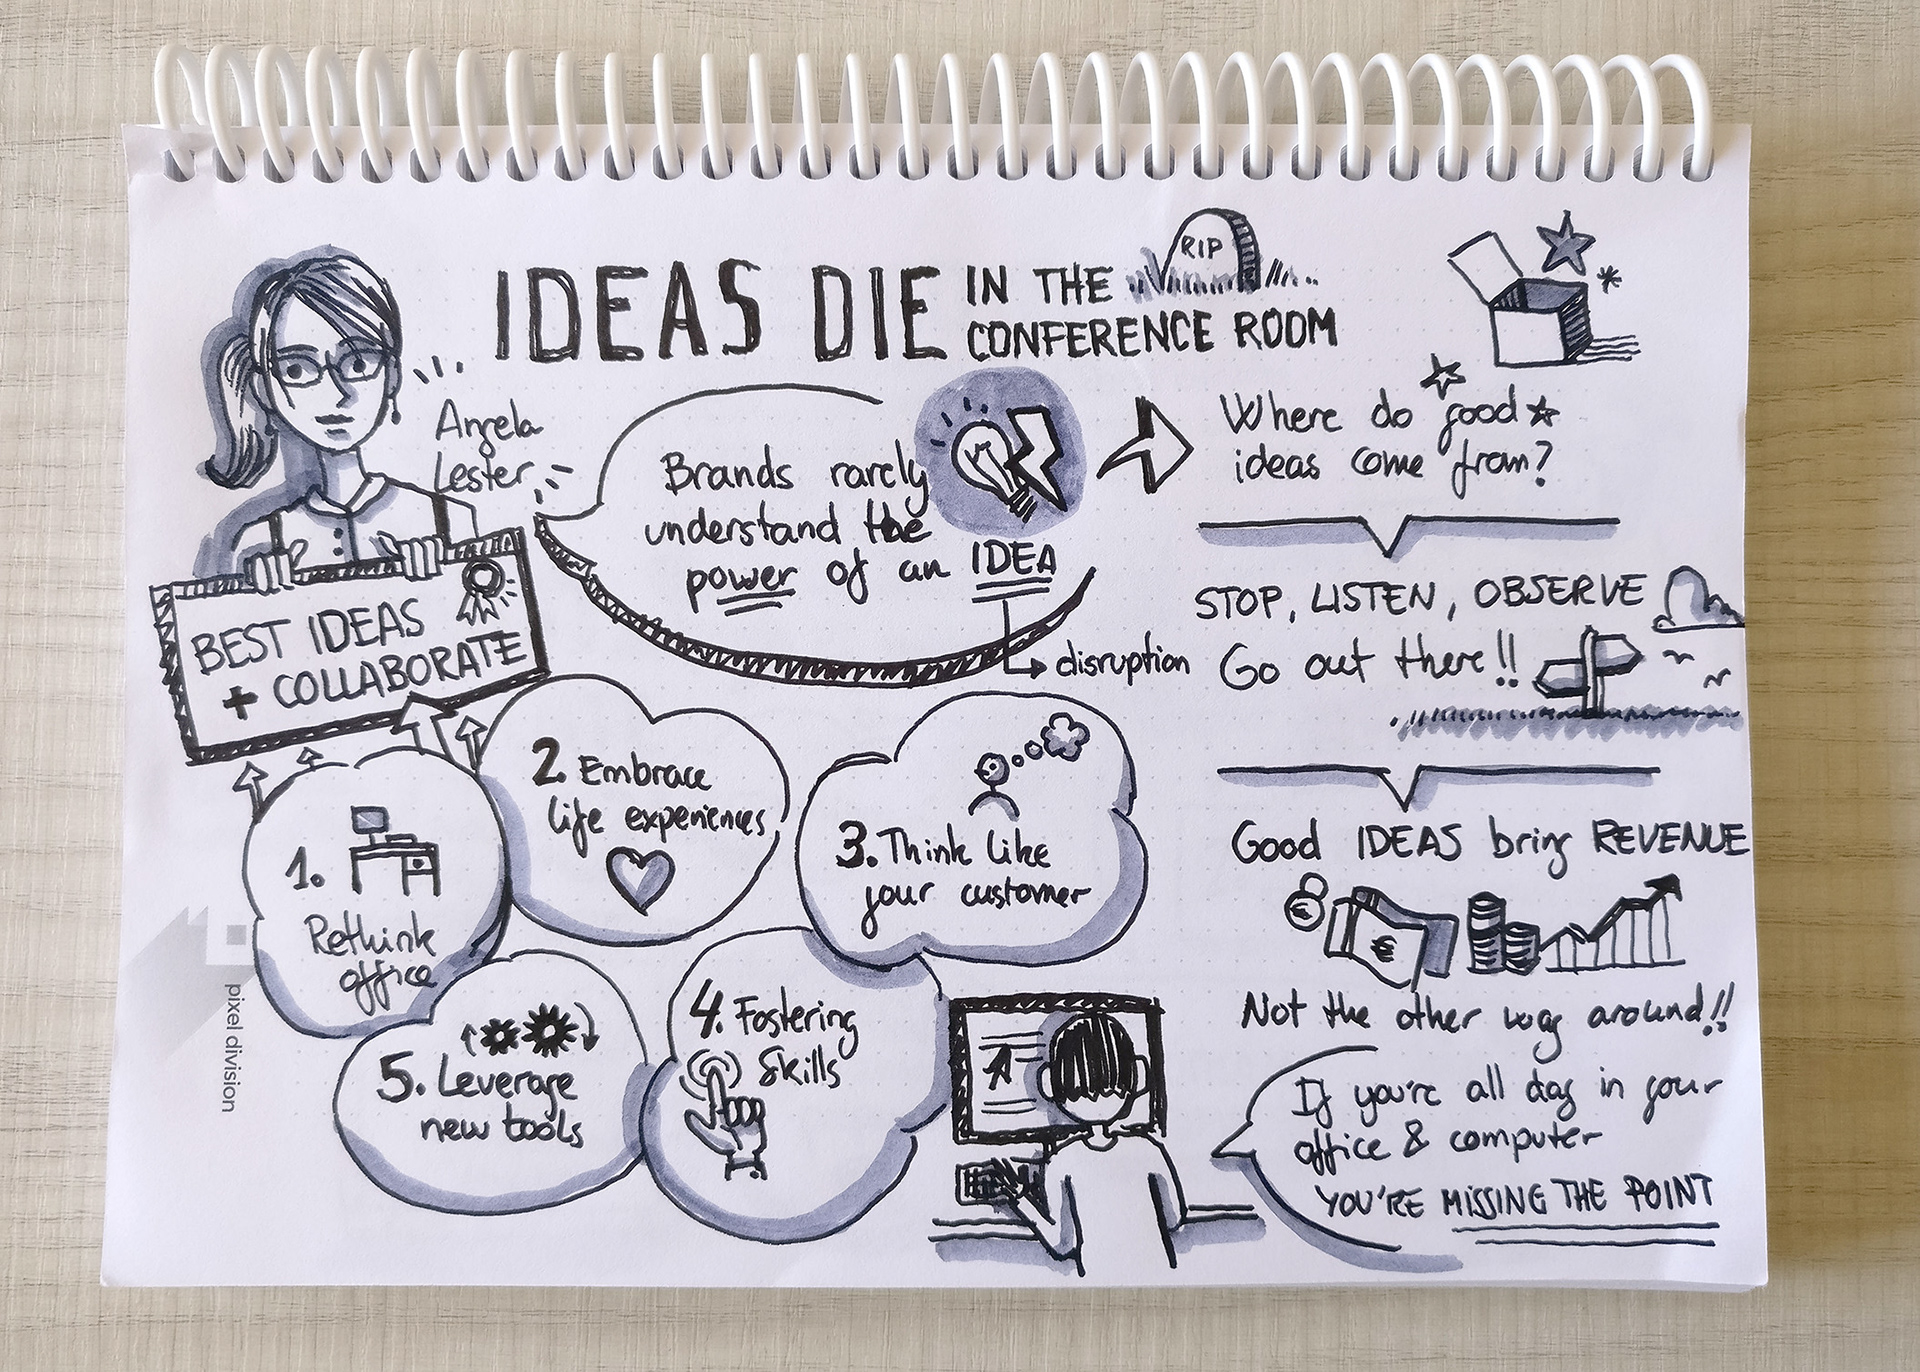 IDEAS DIE IN THE
CONFERENCE ROOM
RIP
Angela
Lester
Brands rarely
understand the
power of an IDEA
disruption
BEST IDEAS
+ COLLABORATE
1.
Rethink
office
2. Embrace
life experiences
3. Think like
your customer
4. Fostering
Skills
5. Leverage
new tools
Where do good
ideas come from?
STOP, LISTEN, OBSERVE
Go out there!!
Good IDEAS bring REVENUE
€
€
Not the other way around!!
If you're all day in your
office & computer
YOU'RE MISSING THE POINT
pixel division